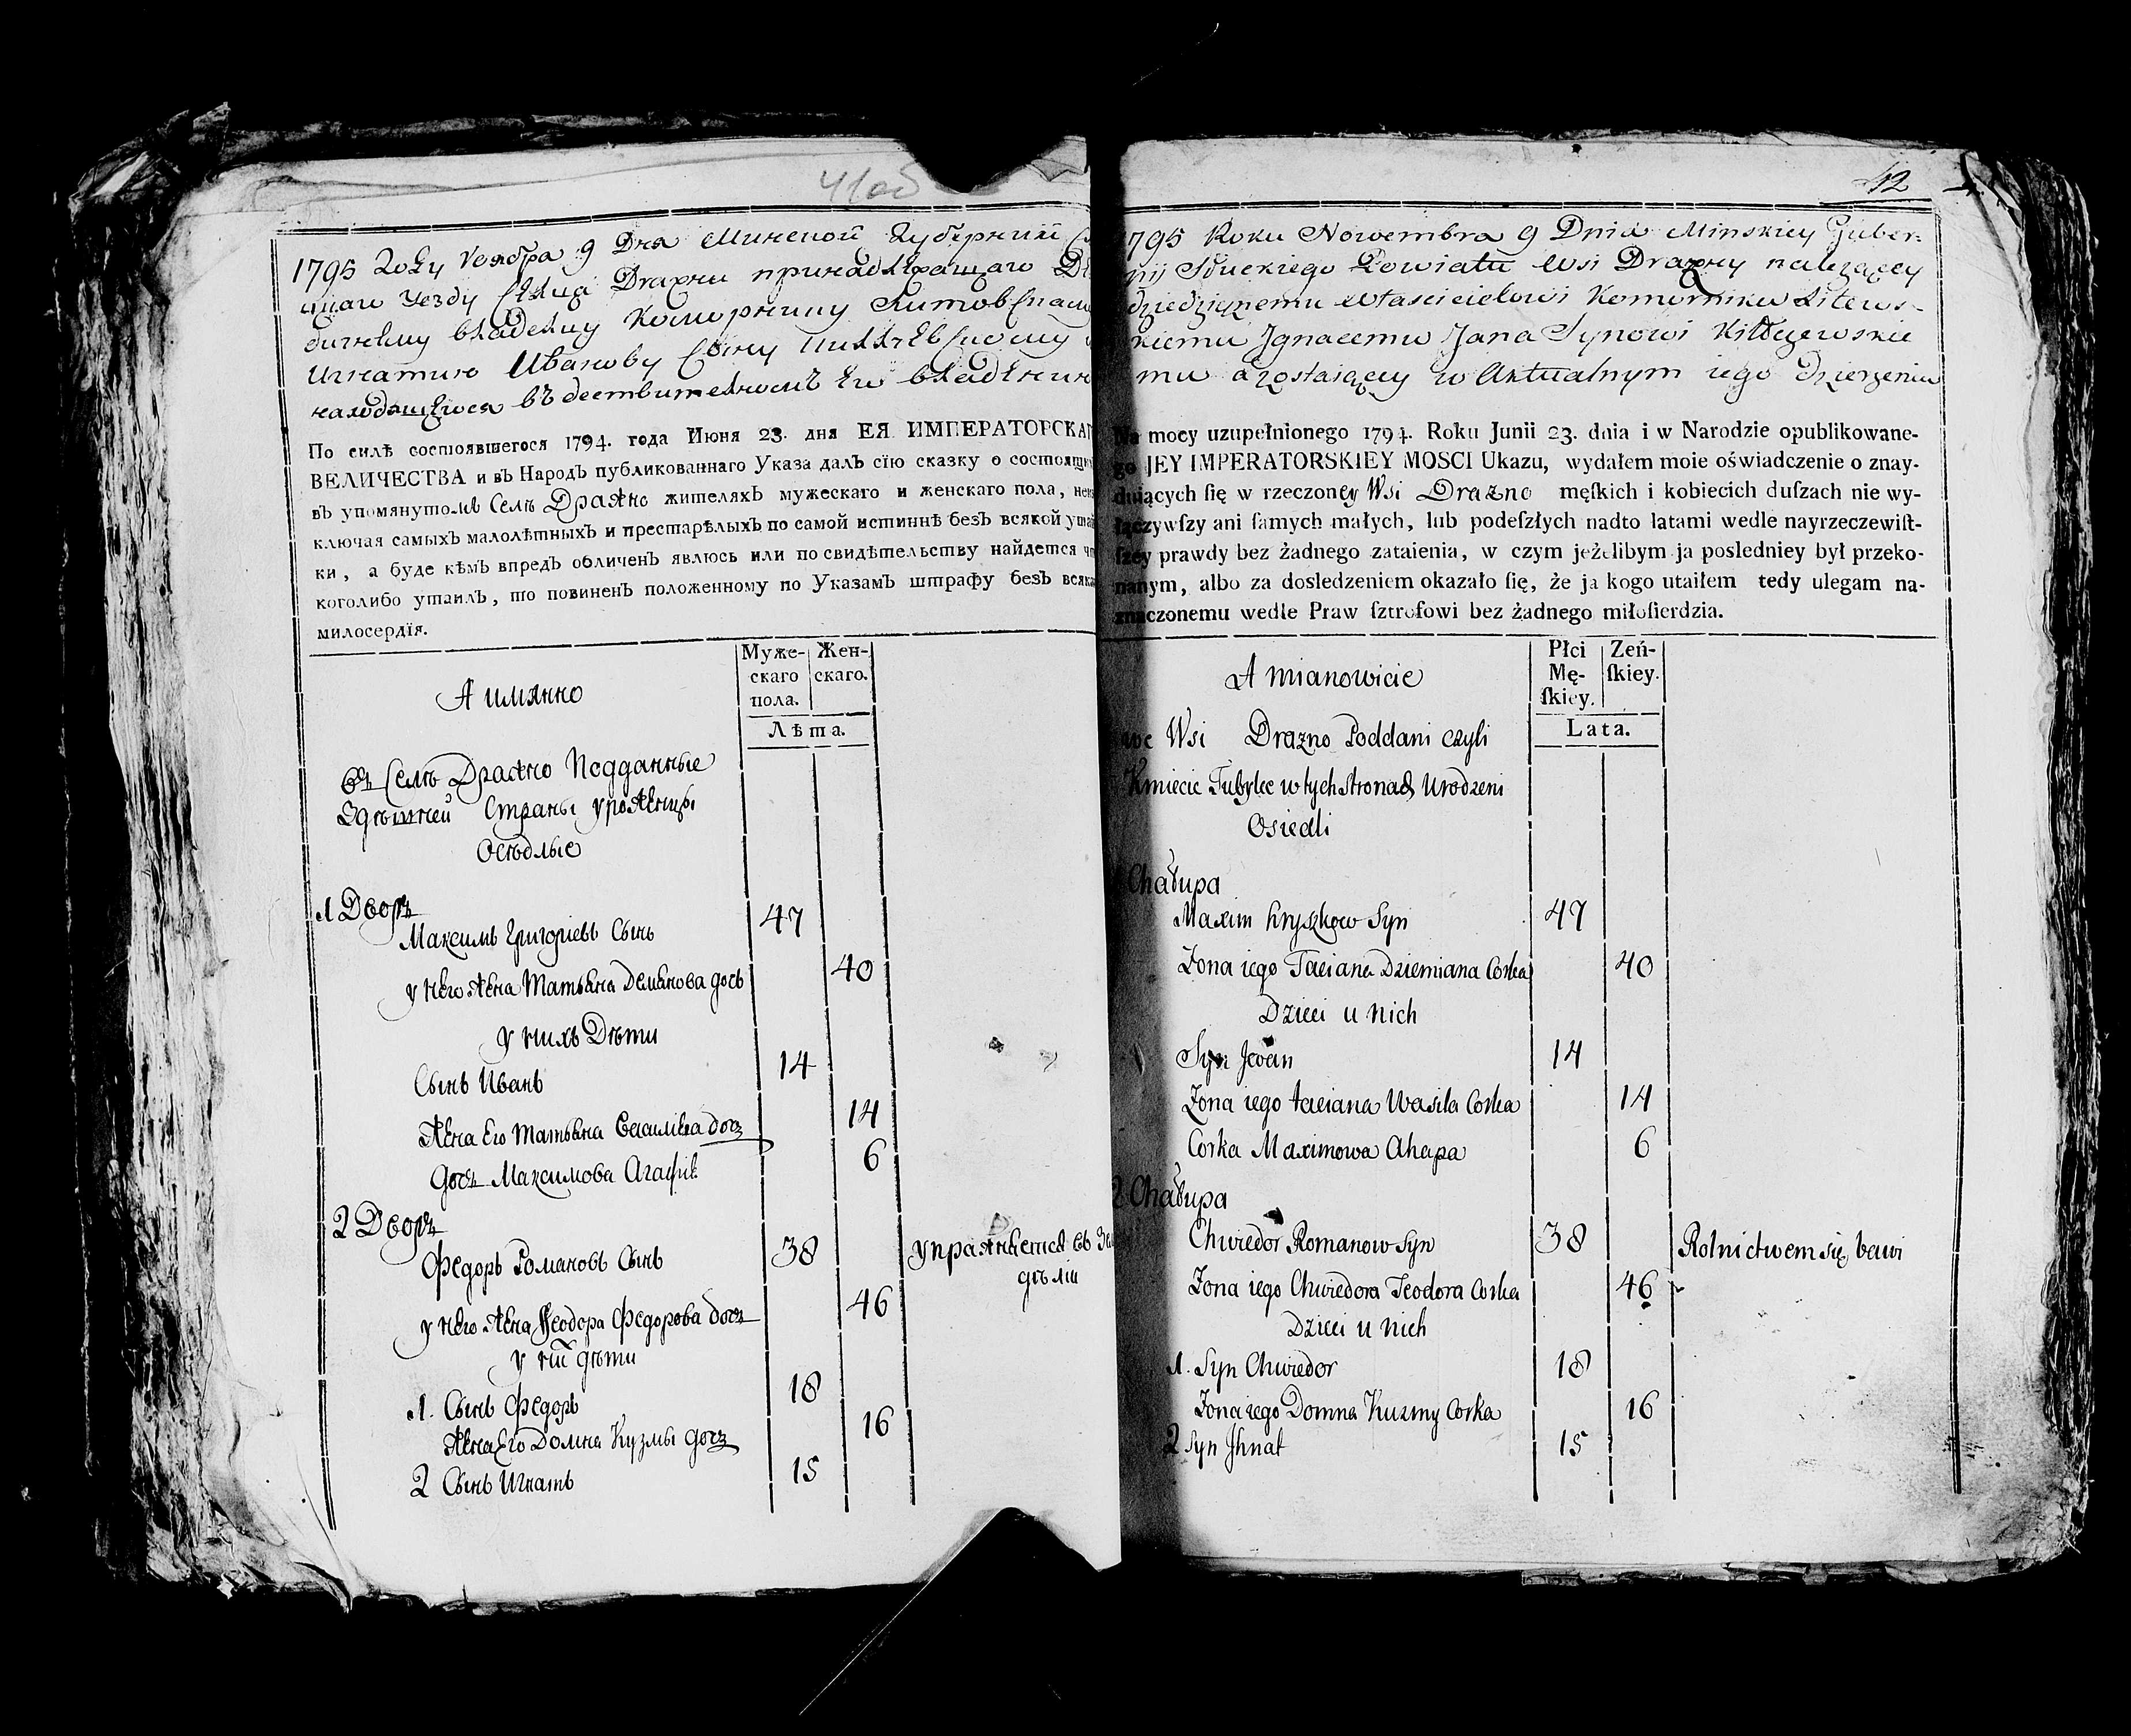 41об
1795 Году Ноября 9 Дня Минской Губернии
цкаго уезду Селца Дражни принадлежащаго
дичному владелцу Коморнику Литовскому
Игнатию Иванову Сыну
находящегося въ дествителномъ Его владении
По силѣ состоявшегося 1794. года Июня 23. дня ЕЯ ИМПЕРАТОРСКАГ
ВЕЛИЧЕСТВА и въ Народъ публикованнаго Указа далъ сїю сказку о состоящи
въ упомянутомъ Селѣ Дражно жителяхъ мужескаго и женскаго пола, неис
ключая самыхъ малолѣтныхъ и престарѣлыхъ по самой истиннѣ безъ всякой утай
ки, а буде кѣмъ впредъ обличенъ явлюсь или по свидѣтельству найдется что
коголибо утаилъ, то повиненъ положенному по Указамъ штрафу безъ всяка
милосердїя.
А имянно
Муже-
скаго
пола.
Жен-
скаго.
Лѣта.
въ Селѣ Дражно Подданные
Здѣшней Страны уроженцы
Осѣдлые
1 Дворъ
Максимъ Григорiевъ Сынъ 47
у него жена Татьяна Демянова дочь 40
у нихъ Дѣти
Сынъ Иванъ 14
жена Его Татьяна Василева дочь 14
дочь Максимова Агафiя 6
2 Дворъ
Федоръ Романовъ Сынъ 38 упражняется въ Зем
дѣлiи
у него жена Феодора Федорова дочь 46
у них дѣти
1. Сынъ Федоръ 18
жена Его Домна Кузмы дочь 16
2 Сынъ Игнатъ 15
42
1795 Roku Nowembra 9 Dnia Minskiey Guber:
nij Słuckiego Powiatu Wsi Drazny należącey
dziedzicznemu właścicielowi Komorniku Litews-
kiemu Jgnacemu Jana Synowi
mu a zostaiącey w Aktualnym iego dzierzeniu
Na mocy uzupełnionego 1794. Roku Junii 23. dnia i w Narodzie opublikowane-
go JEY IMPERATORSKIEY MOSCI Ukazu, wydałem moie oświadczenie o znay-
duiących ſię w rzeczoney Wsi Drazno męſkich i kobiecich duſzach nie wy-
łączywſzy ani ſamych małych, lub podeſzłych nadto latami wedle nayrzeczewiſt-
ſzey prawdy bez żadnego zataienia, w czym jeżelibym ja posledniey był przeko-
nanym, albo za dosledzeniem okazało ſię, że ja kogo utaiłem tedy ulegam na-
znaczonemu wedle Praw ſztrofowi bez żadnego miłoſierdzia.
A mianowicie
Płci
Mę-
ſkiey.
Zeń-
ſkiey.
Lata.
we Wsi Drazno Poddani czyli
Kmiecie Tubylce w tych stronach Urodzeni
Osiedli
Chałupa
Maxim Hryszkow Syn 47
Zona iego Taciana Dziemiana Corka 40
Dzieci u nich
Syn Jwan 14
Zona iego taciana Wasila Corka 14
Corka Maximowa Ahapa 6
2 Chałupa
Chwiedor Romanow Syn 38 Rolnictwem się bawi
Zona iego Chwiedora Teodora Corka 46
Dzieci u nich
1. Syn Chwiedor 18
Zona iego Domna Kuzmy Corka 16
2 Syn Jhnat 15